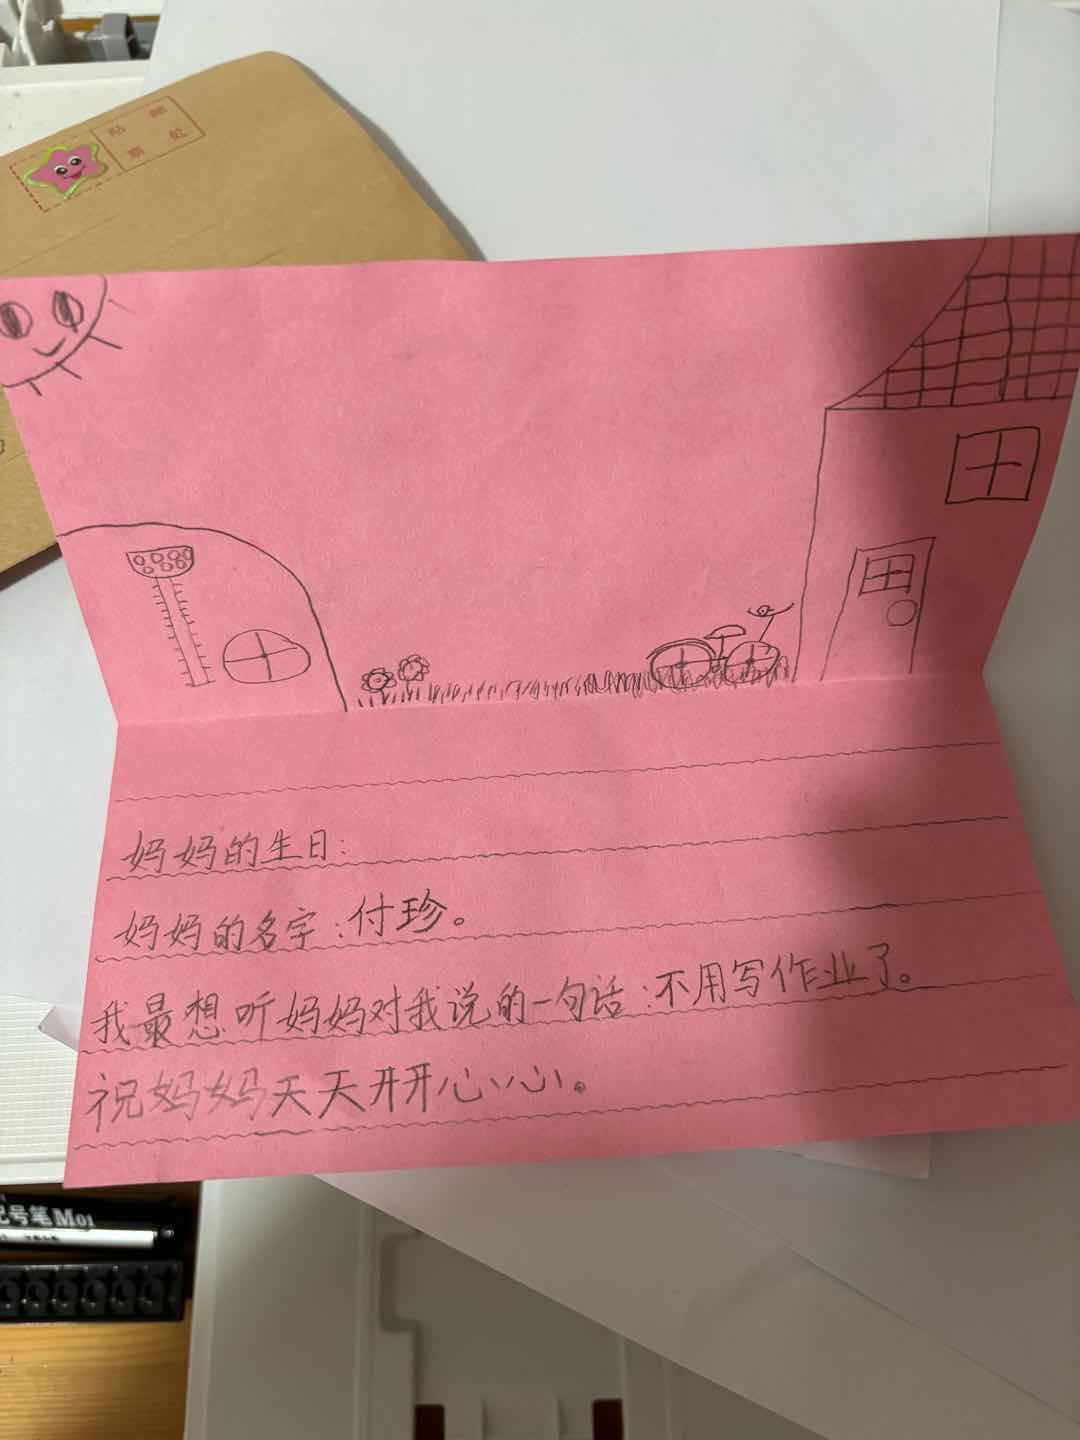 贴 邮
票 处
妈妈的生日:
妈妈的名字:付珍。
我最想听妈妈对我说的一句话:不用写作业了。
祝妈妈天天开开心心。
记号笔M01